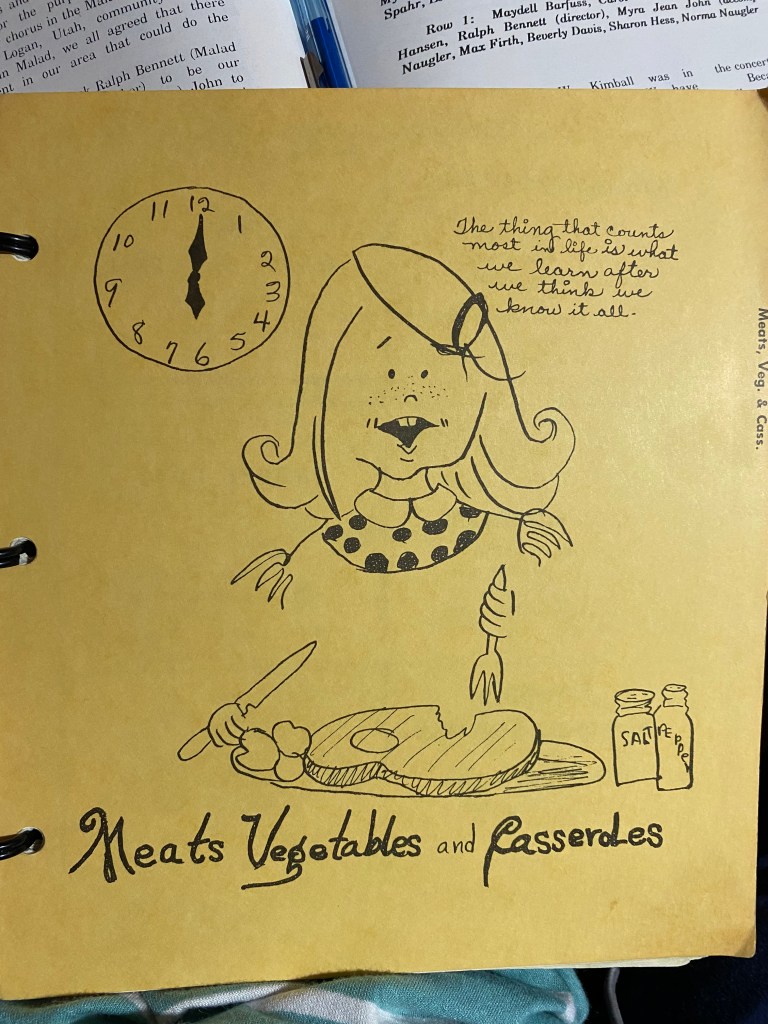 or the purp
chorus in the Mala
Logan, Utah, community
n Malad, we all agreed that there
nt in our area that could do the
k Ralph Bennett (Malad
to be our
John to
Spahr,
Row 1: Maydell Barfuss,
Hansen, Ralph Bennett (director), Myra Jean John
Naugler, Max Firth, Beverly Davis, Sharon Hess, Norma Naugler
Kimball was in the concert
have Beca
12
11 1
10 2
9 3
8 4
7 6 5
The thing that counts
most in life is what
we learn after
we think we
know it all.
Meats, Veg. & Cass.
SALT PEPPER
Meats Vegetables and Casseroles